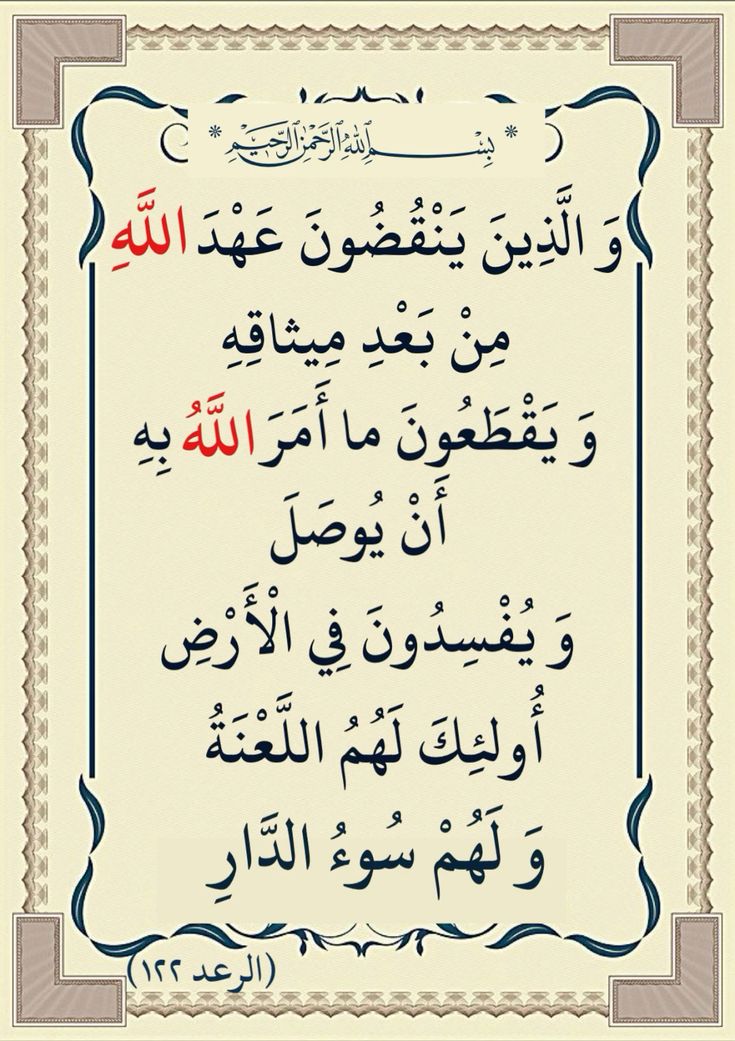 * بِسْمِ اللهِ الرَّحْمٰنِ الرَّحِيْمِ *
وَ الَّذِينَ يَنْقُضُونَ عَهْدَ اللَّهِ
مِنْ بَعْدِ مِيثاقِهِ
وَ يَقْطَعُونَ ما أَمَرَ اللَّهُ بِهِ
أَنْ يُوصَلَ
وَ يُفْسِدُونَ فِي الْأَرْضِ
أُولئِكَ لَهُمُ اللَّعْنَةُ
وَ لَهُمْ سُوءُ الدَّارِ
(الرعد ١٢٢)